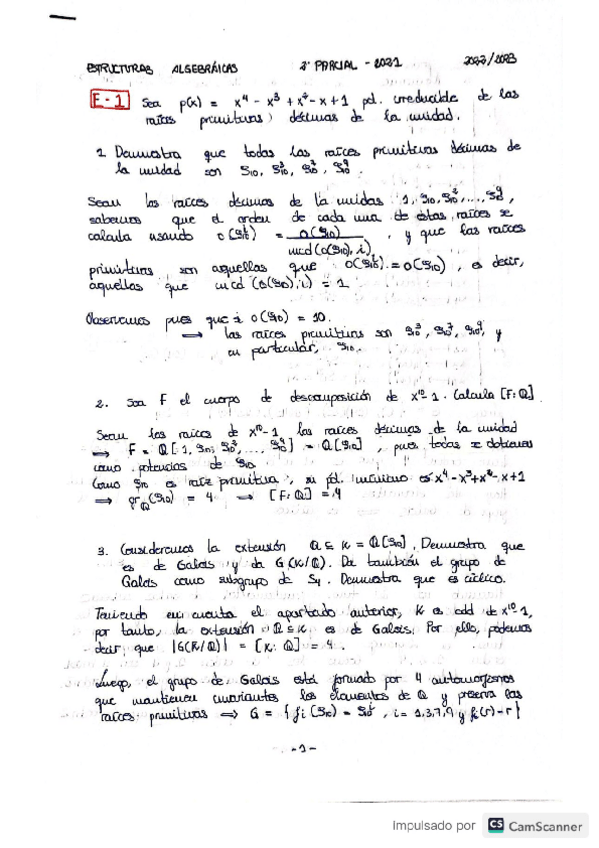 ESTRUCTURAS ALGEBRÁICAS 2º PARCIAL - 2021 2022/2023
E-1 Sea p(x) = x⁴ - x³ + x² - x + 1 pol. irreducible de las
raíces primitivas décimas de la unidad.
1. Demuestra que todas las raíces primitivas décimas de
la unidad son ξ₁₀, ξ₁₀³, ξ₁₀⁷, ξ₁₀⁹.
Sean las raíces décimas de la unidad 1, ξ₁₀, ξ₁₀², ..., ξ₁₀⁹,
sabemos que el orden de cada una de estas raíces se
calcula usando o(ξ₁₀ⁱ) = o(ξ₁₀) / mcd(o(ξ₁₀), i), y que las raíces
primitivas son aquellas que o(ξ₁₀ⁱ) = o(ξ₁₀), es decir,
aquellas que mcd(o(ξ₁₀), i) = 1
Observemos pues que o(ξ₁₀) = 10.
⟹ las raíces primitivas son ξ₁₀³, ξ₁₀⁷, ξ₁₀⁹, y
en particular, ξ₁₀.
2. Sea F el cuerpo de descomposición de x¹⁰-1. Calcula [F:Q]
Sean las raíces de x¹⁰-1 las raíces décimas de la unidad
⟹ F = Q[1, ξ₁₀, ξ₁₀², ..., ξ₁₀⁹] = Q[ξ₁₀], pues todas se obtienen
como potencias de ξ₁₀
Como ξ₁₀ es raíz primitiva, su pol. mínimo es x⁴-x³+x²-x+1
⟹ gr_Q(ξ₁₀) = 4 ⟹ [F:Q] = 4
3. Consideremos la extensión Q ⊆ K = Q[ξ₁₀]. Demuestra que
es de Galois y da G(K/Q). Da también el grupo de
Galois como subgrupo de S₄. Demuestra que es cíclico.
Teniendo en cuenta el apartado anterior, K es cdd de x¹⁰-1,
por tanto, la extensión Q ⊆ K es de Galois. Por ello, podemos
decir que |G(K/Q)| = [K:Q] = 4.
Luego, el grupo de Galois está formado por 4 automorfismos
que mantienen invariantes los elementos de Q y preserva las
raíces primitivas ⟹ G = { fᵢ(ξ₁₀) = ξ₁₀ⁱ, i = 1,3,7,9 y fᵢ(r) = r }
- 1 -
Impulsado por CS CamScanner